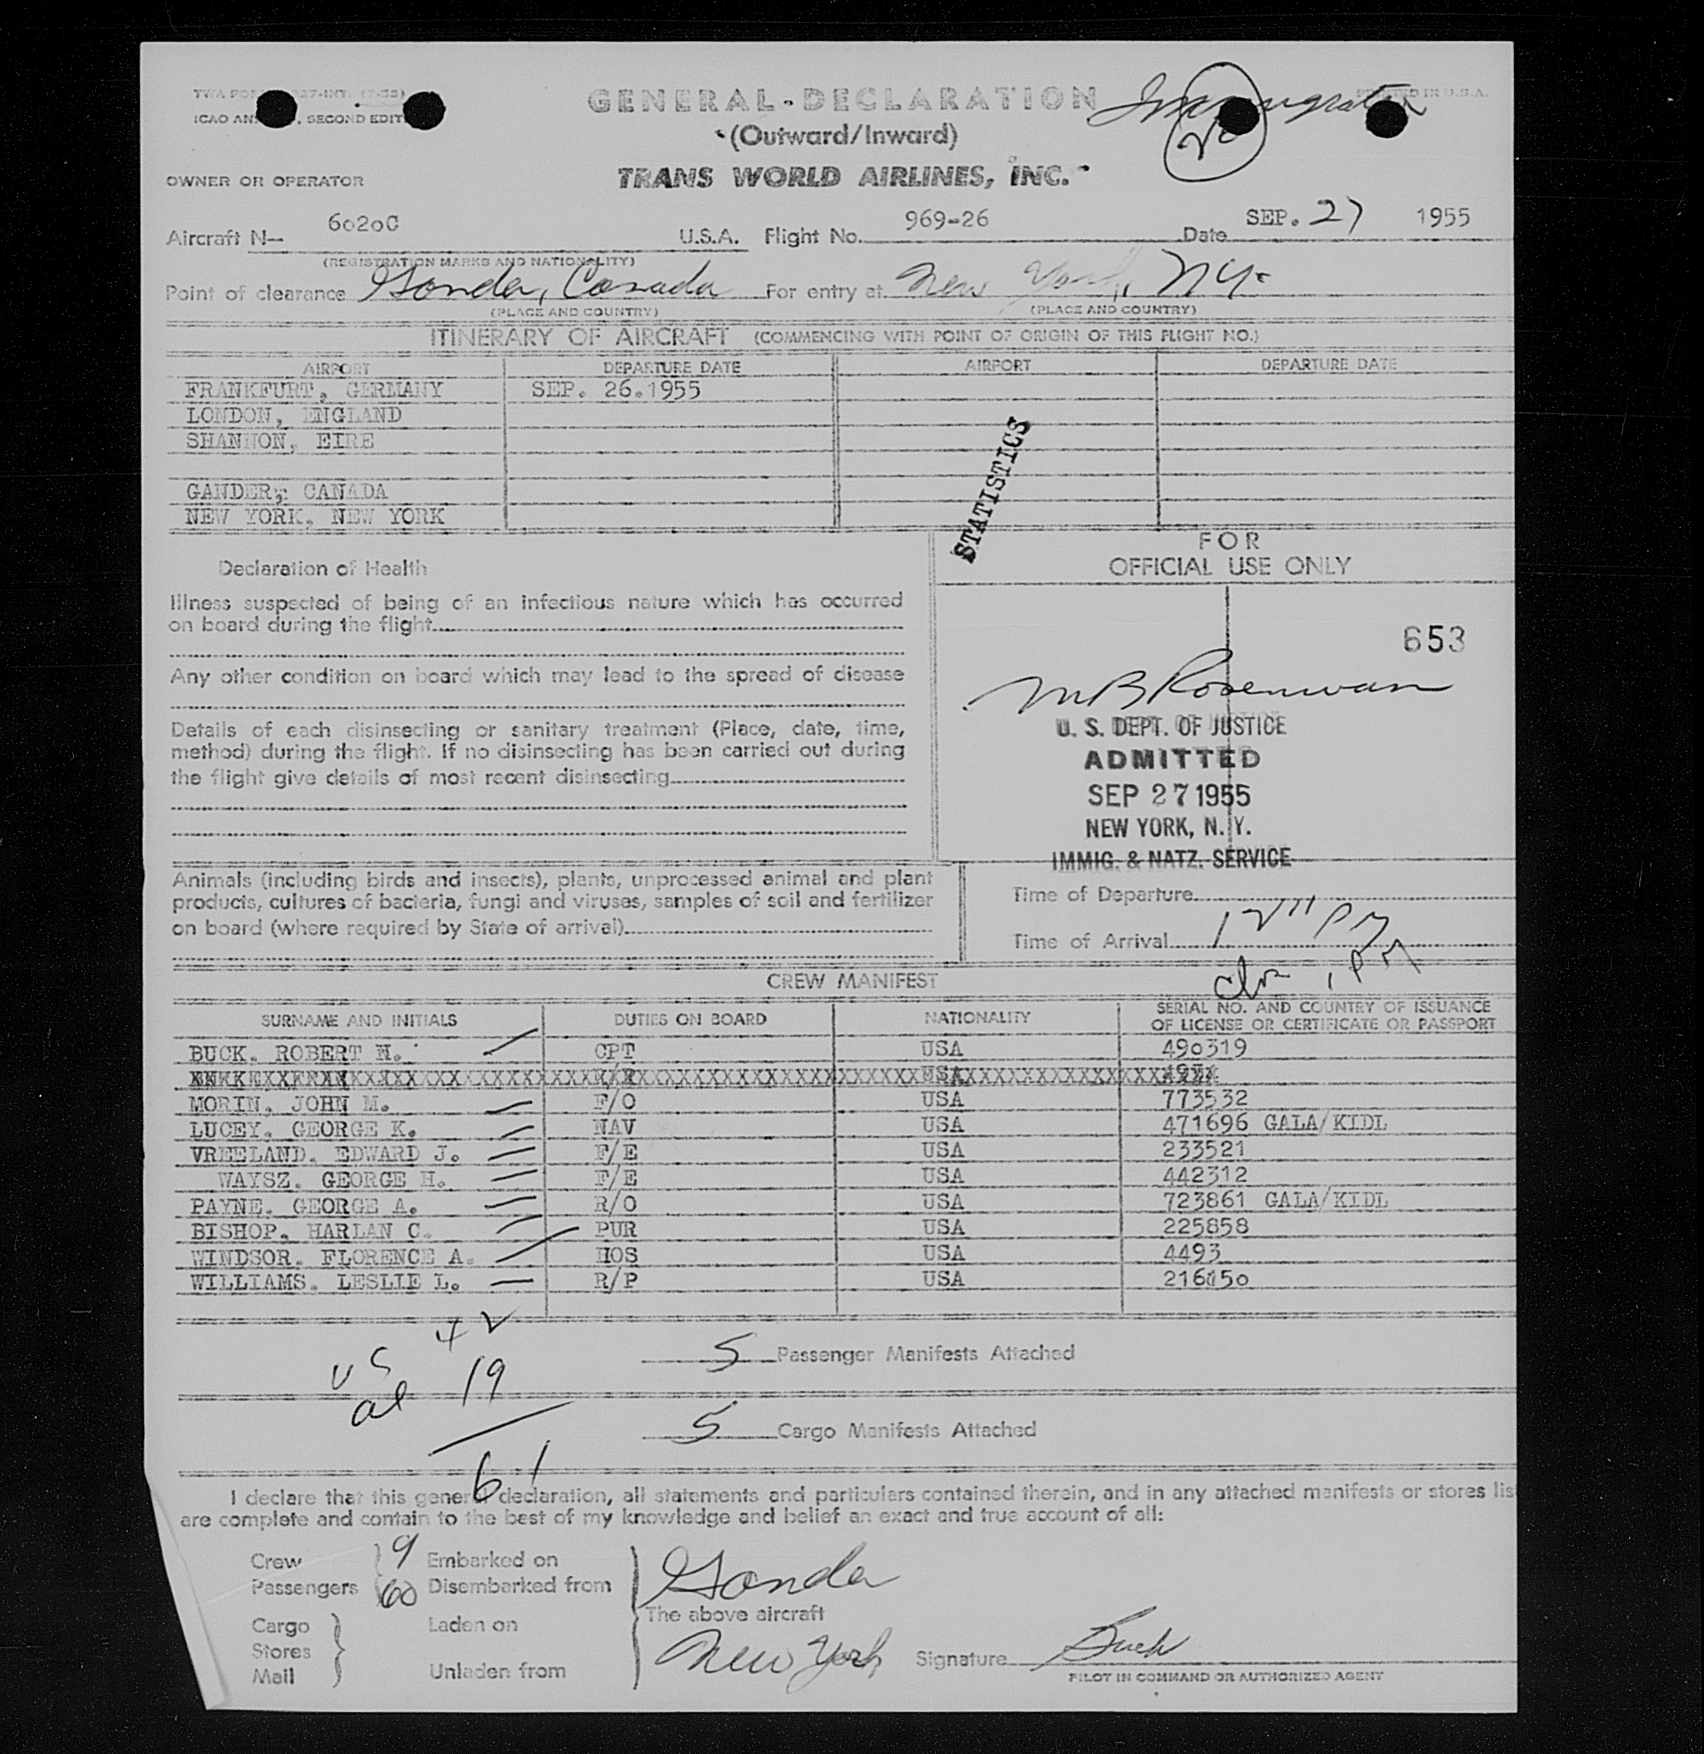 GENERAL-DECLARATION
Immigration
(Outward/Inward)
ICAO SECOND EDIT
PRINTED IN U.S.A.
TRANS WORLD AIRLINES, INC.
OWNER OR OPERATOR
Aircraft N— 6020C U.S.A. Flight No. 969-26 Date SEP. 27 1955
(REGISTRATION MARKS AND NATIONALITY)
Point of clearance Gander, Canada For entry at New York, NY.
(PLACE AND COUNTRY) (PLACE AND COUNTRY)
ITINERARY OF AIRCRAFT (COMMENCING WITH POINT OF ORIGIN OF THIS FLIGHT NO.)
AIRPORT DEPARTURE DATE AIRPORT DEPARTURE DATE
FRANKFURT, GERMANY SEP. 26.1955
LONDON, ENGLAND
SHANNON, EIRE
GANDER, CANADA
NEW YORK, NEW YORK
STATISTICS
Declaration of Health
Illness suspected of being of an infectious nature which has occurred
on board during the flight
Any other condition on board which may lead to the spread of disease
Details of each disinsecting or sanitary treatment (Place, date, time,
method) during the flight. If no disinsecting has been carried out during
the flight give details of most recent disinsecting
FOR
OFFICIAL USE ONLY
653
U. S. DEPT. OF JUSTICE
ADMITTED
SEP 27 1955
NEW YORK, N. Y.
IMMIG. & NATZ. SERVICE
Animals (including birds and insects), plants, unprocessed animal and plant
products, cultures of bacteria, fungi and viruses, samples of soil and fertilizer
on board (where required by State of arrival)
Time of Departure
Time of Arrival 12 11 PM
1 PM
CREW MANIFEST
SURNAME AND INITIALS DUTIES ON BOARD NATIONALITY SERIAL NO. AND COUNTRY OF ISSUANCE
OF LICENSE OR CERTIFICATE OR PASSPORT
BUCK. ROBERT N. CPT USA 490319
MORIN. JOHN M. F/O USA 773532
LUCEY. GEORGE K. NAV USA 471696 GALA/KIDL
VREELAND. EDWARD J. F/E USA 233521
WAYSZ. GEORGE H. F/E USA 442312
PAYNE. GEORGE A. R/O USA 723861 GALA/KIDL
BISHOP. HARLAN C. PUR USA 225858
WINDSOR. FLORENCE A. HOS USA 4493
WILLIAMS. LESLIE L. R/P USA
US 42
al 19
61
5 Passenger Manifests Attached
5 Cargo Manifests Attached
I declare that this general declaration, all statements and particulars contained therein, and in any attached manifests or stores lis
are complete and contain to the best of my knowledge and belief an exact and true account of all:
Crew 9 Embarked on
Passengers 60 Disembarked from
Gander
The above aircraft
Cargo Laden on
Stores
Mail Unladen from
New York
Signature Buck
PILOT IN COMMAND OR AUTHORIZED AGENT